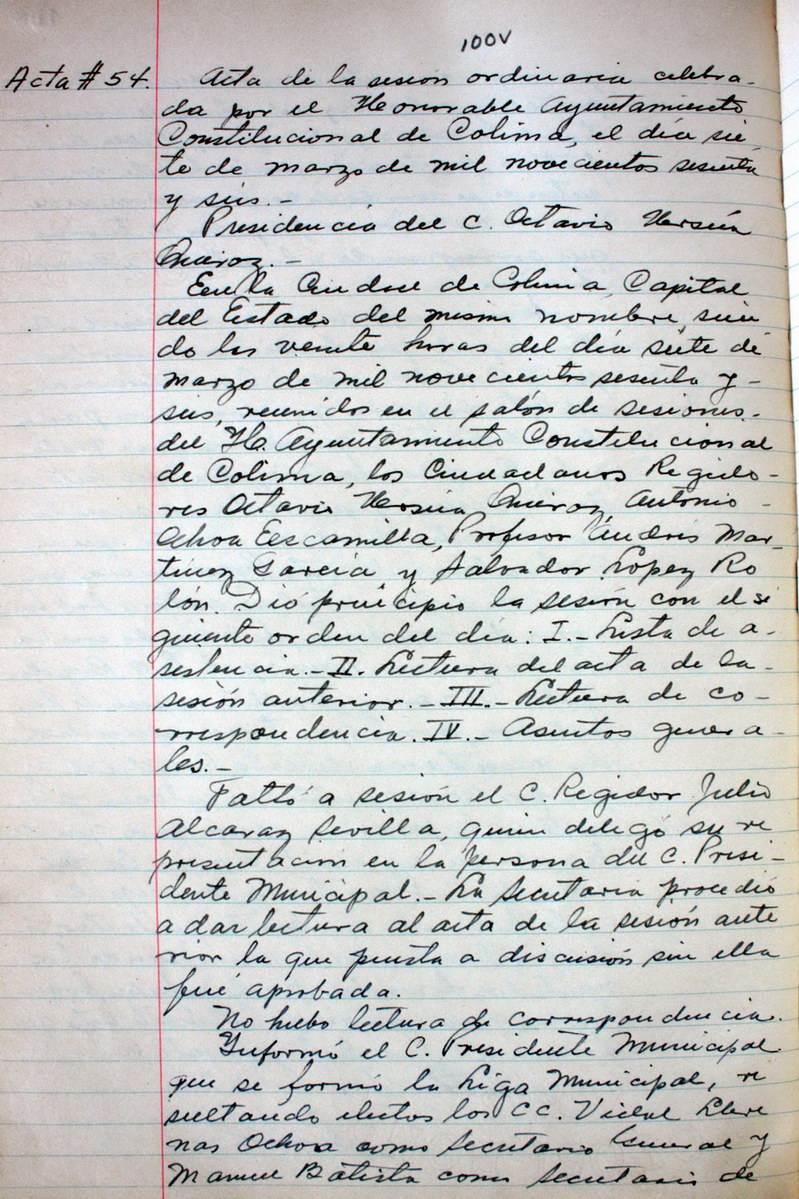 100V
Acta # 54.
Acta de la sesión ordinaria celebra-
da por el Honorable Ayuntamiento
Constitucional de Colima, el día sie-
te de marzo de mil novecientos sesenta
y seis.-
Presidencia del C. Octavio Ursúa
Quiroz.-
En la Ciudad de Colima, Capital
del Estado del mismo nombre, sien
do las veinte horas del día siete de
marzo de mil novecientos sesenta y -
seis, reunidos en el salón de sesiones.
del H. Ayuntamiento Constitucional
de Colima, los Ciudadanos Regido-
res Octavio Ursúa Quiroz, Antonio -
Ochoa Escamilla, Profesor Andrés Mar-
tínez García y Salvador López Ro
lón. Dió principio la sesión con el si
guiente orden del día: I.- Lista de a-
sistencia.- II. Lectura del acta de la -
sesión anterior.- III.- Lectura de co-
rrespondencia. IV.- Asuntos genera-
les.-
Faltó a sesión el C. Regidor Julio
Alcaraz Sevilla, quien delegó su re
presentación en la persona del C. Presi-
dente Municipal.- La Secretaría procedió
a dar lectura al acta de la sesión ante
rior la que puesta a discusión sin ella
fué aprobada.
No hubo lectura de correspondencia.
Informó el C. Presidente Municipal
que se formó la Liga Municipal, re
sultando electos los CC. Vidal Llere
nas Ochoa como Secretario General y
Manuel Batista como Secretario de